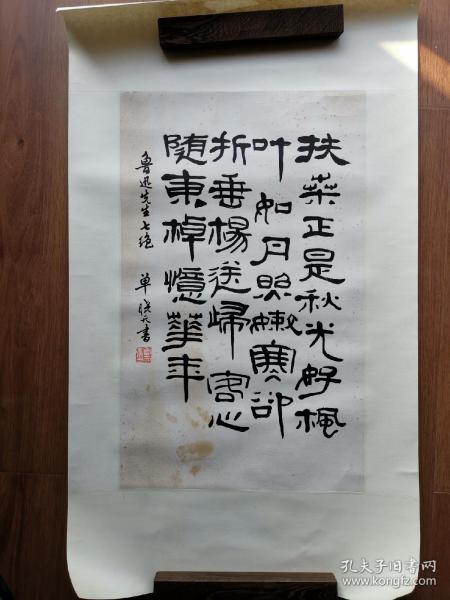 扶桒正是秋光好楓
叶如丹照嫩寒卻
折垂楊送歸客心
随東棹憶華年
魯迅先生七绝 单晓天書
孔夫子旧书网
www.kongfz.com